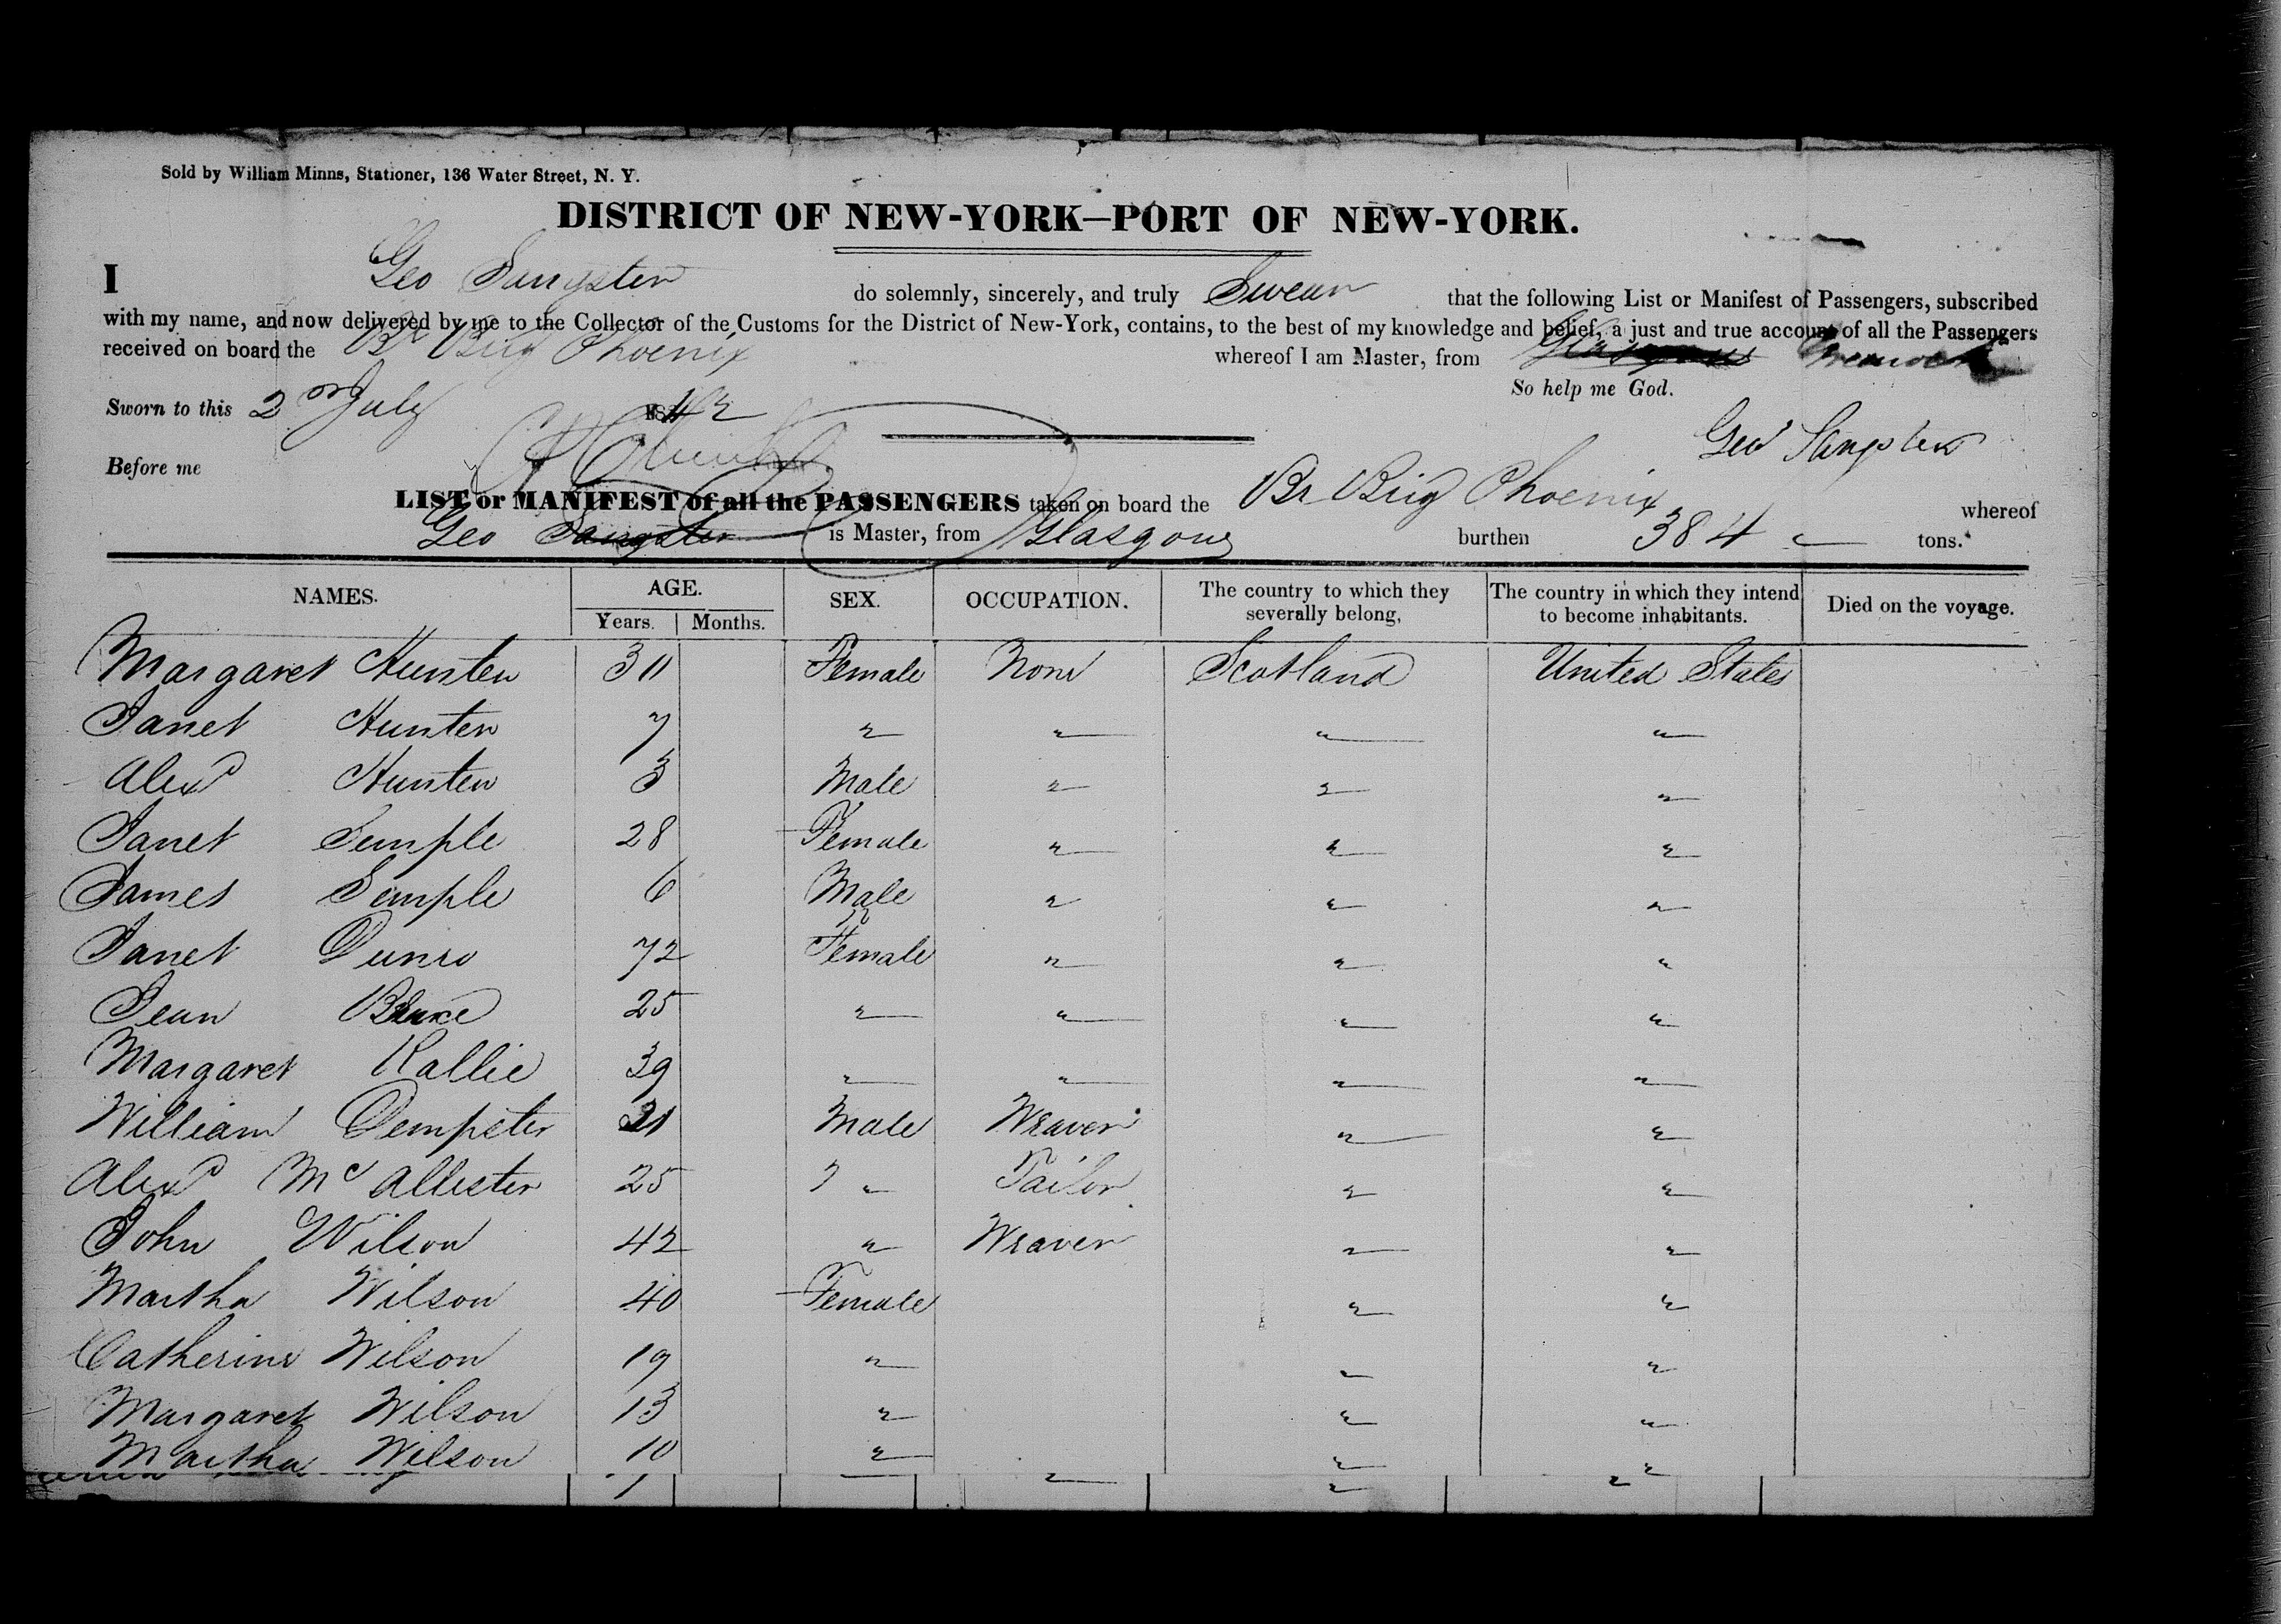 Sold by William Minns, Stationer, 136 Water Street, N. Y.
DISTRICT OF NEW-YORK—PORT OF NEW-YORK.
I Geo Sangster do solemnly, sincerely, and truly Swear that the following List or Manifest of Passengers, subscribed
with my name, and now delivered by me to the Collector of the Customs for the District of New-York, contains, to the best of my knowledge and belief, a just and true account of all the Passengers
received on board the Br Brig Phoenix whereof I am Master, from Glasgow Greenock
So help me God.
Sworn to this 2nd July 1842
Geo Sangster
Before me
LIST or MANIFEST of all the PASSENGERS taken on board the Br Brig Phoenix whereof
Geo Sangster is Master, from Glasgow burthen 384 tons.
NAMES. AGE. SEX. OCCUPATION. The country to which they severally belong, The country in which they intend to become inhabitants. Died on the voyage.
Years. Months.
Margaret Hunter 30 Female None Scotland United States
Janet Hunter 7 " " " "
Alexd Hunter 3 Male " " "
Janet Semple 28 Female " " "
James Semple 6 Male " " "
Janet 72 Female " " "
Jean Bruce 25 " " " "
Margaret 39 " " " "
William Dempster 21 Male Weaver " "
Alexd McAllister 25 " Tailor " "
John Wilson 42 " Weaver " "
Martha Wilson 40 Female " "
Catherine Wilson 19 " " "
Margaret Wilson 13 " " "
Martha Wilson 10 " " "